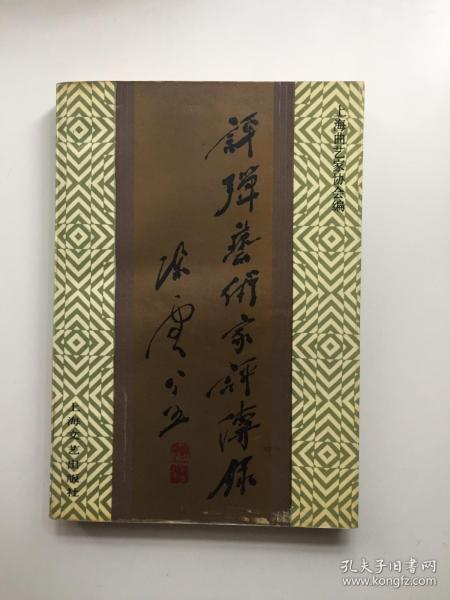 上海曲艺家协会编
評彈藝術家評傳錄
陳雲 八五
上海文艺出版社
孔夫子旧书网
www.kongfz.com